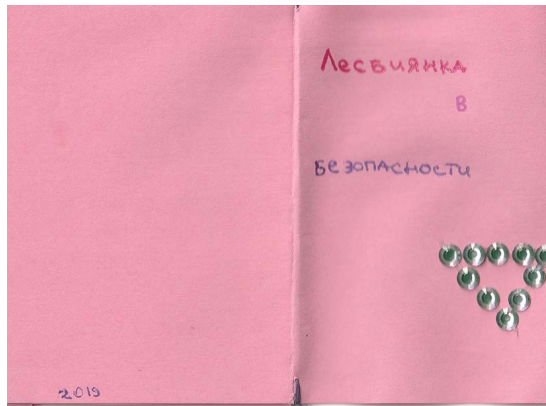 Лесбиянка
в
безопасности
2019